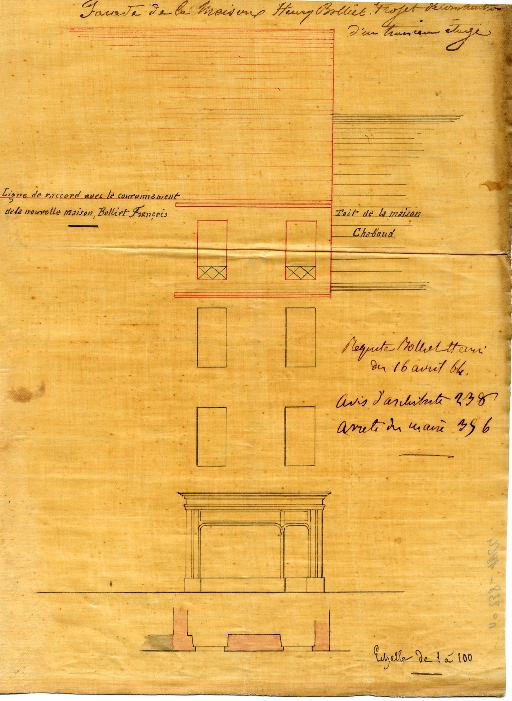 Façade de la Maison Henry Bolliet. Projet de construction
d'un troisième étage
Ligne de raccord avec le couronnement
de la nouvelle maison, Bolliet François
Toit de la maison
Chabaud
Requête Bolliet Henri
du 16 avril 64.
Avis d'architecte 238
Arrêté du maire 396
Echelle de 1 à 100